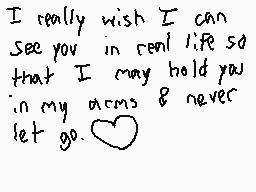 I really wish I can
see you in real life so
that I may hold you
in my arms & never
let go.